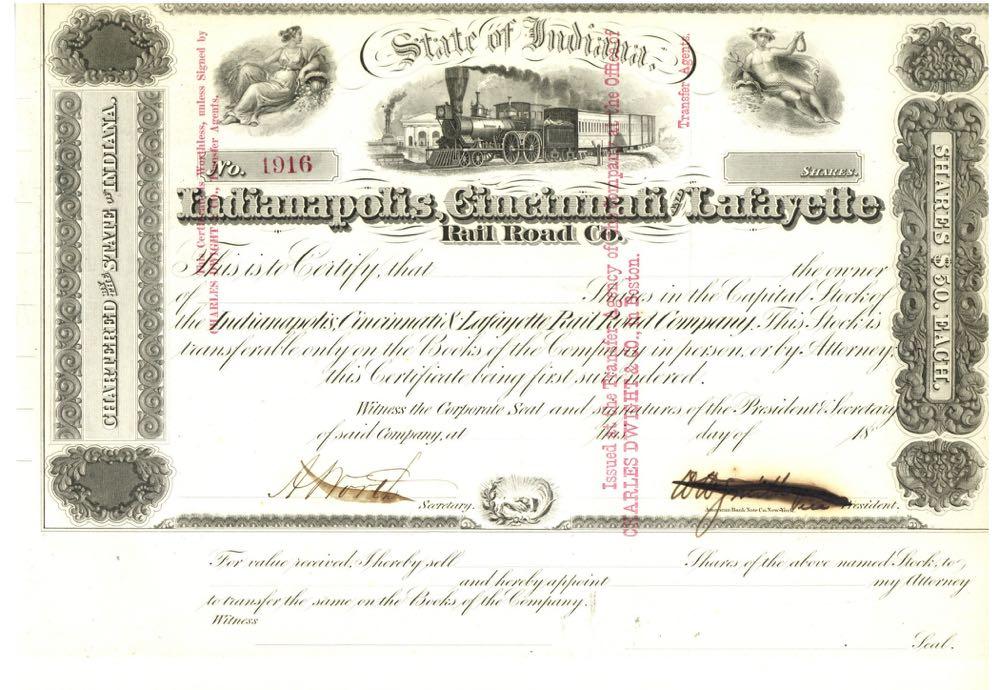 State of Indiana.
No. 1916
SHARES.
Indianapolis, Cincinnati and Lafayette
Rail Road Co.
This is to Certify, that the owner
of Shares in the Capital Stock of
the Indianapolis, Cincinnati & Lafayette Rail Road Company. This Stock is
transferable only on the Books of the Company in person, or by Attorney,
this Certificate being first surrendered.
Witness the Corporate Seal and signatures of the President & Secretary
of said Company, at this day of 18
Secretary.
President.
American Bank Note Co. New-York
CHARTERED BY THE STATE OF INDIANA.
SHARES $50. EACH.
This Certificate is Worthless, unless Signed by
CHARLES DWIGHT & CO., Transfer Agents.
Issued at the Transfer Agency of the Company at the Office of
CHARLES DWIGHT & CO., in Boston.
Transfer Agents.
A Worth
For value received, I hereby sell Shares of the above named Stock, to
and hereby appoint my Attorney
to transfer the same on the Books of the Company.
Witness
Seal.